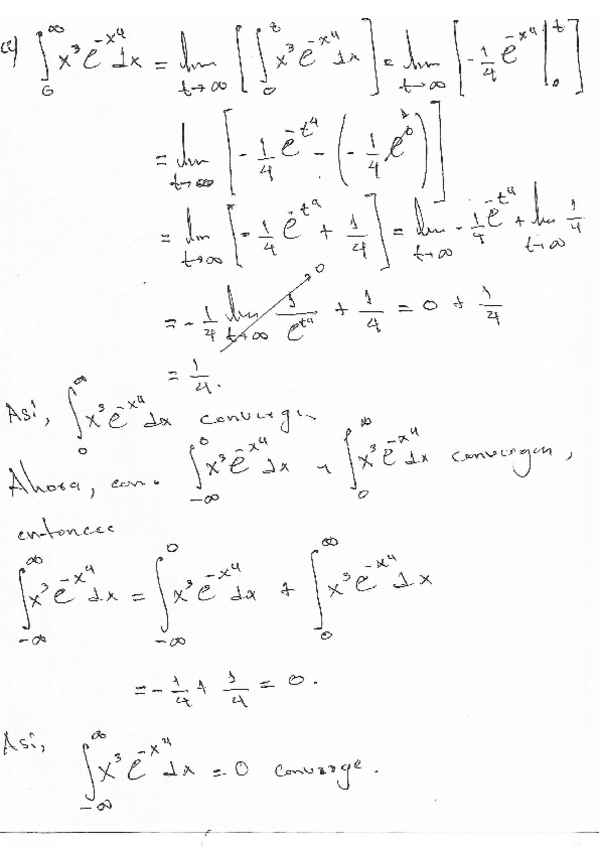 ii) ∫₀^∞ x³e^{-x⁴}dx = lim_{t→∞} [∫₀^t x³e^{-x⁴}dx] = lim_{t→∞} [-1/4 e^{-x⁴} |₀^t]
= lim_{t→∞} [-1/4 e^{-t⁴} - (-1/4 e⁰)]
= lim_{t→∞} [-1/4 e^{-t⁴} + 1/4] = lim_{t→∞} -1/4 e^{-t⁴} + lim_{t→∞} 1/4
= -1/4 lim_{t→∞} 1/e^{t⁴} + 1/4 = 0 + 1/4
= 1/4.
Así, ∫₀^∞ x³e^{-x⁴}dx converge.
Ahora, como ∫_{-∞}^0 x³e^{-x⁴}dx y ∫₀^∞ x³e^{-x⁴}dx convergen,
entonces
∫_{-∞}^∞ x³e^{-x⁴}dx = ∫_{-∞}^0 x³e^{-x⁴}dx + ∫₀^∞ x³e^{-x⁴}dx
= -1/4 + 1/4 = 0.
Así, ∫_{-∞}^∞ x³e^{-x⁴}dx = 0 converge.